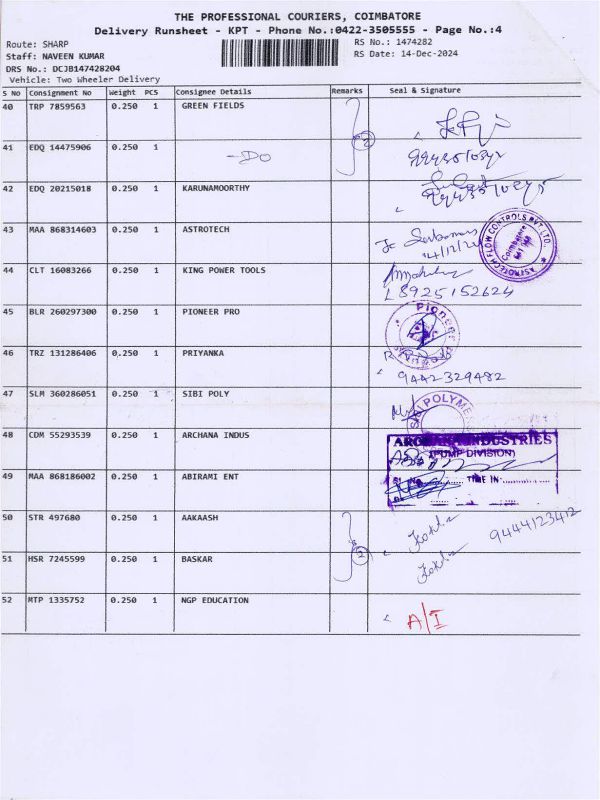 THE PROFESSIONAL COURIERS, COIMBATORE
Delivery Runsheet - KPT - Phone No.:0422-3505555 - Page No.:4
Route: SHARP RS No.: 1474282
Staff: NAVEEN KUMAR RS Date: 14-Dec-2024
DRS No.: DCJB147428204
Vehicle: Two Wheeler Delivery
S No Consignment No Weight PCS Consignee Details Remarks Seal & Signature
40 TRP 7859563 0.250 1 GREEN FIELDS
41 EDQ 14475906 0.250 1 -DO 2
42 EDQ 20215018 0.250 1 KARUNAMOORTHY
43 MAA 868314603 0.250 1 ASTROTECH
14/12/24
ASTROTECH FLOW CONTROLS PVT. LTD. Coimbatore
44 CLT 16083266 0.250 1 KING POWER TOOLS
8925152624
45 BLR 260297300 0.250 1 PIONEER PRO Pioneer
46 TRZ 131286406 0.250 1 PRIYANKA
9442329482
47 SLM 360286051 0.250 1 SIBI POLY
SIBI POLYMERS
48 CDM 55293539 0.250 1 ARCHANA INDUS INDUSTRIES
(PUMP DIVISION)
49 MAA 868186002 0.250 1 ABIRAMI ENT TIME IN
50 STR 497680 0.250 1 AAKAASH 9444123412
51 HSR 7245599 0.250 1 BASKAR 2
52 MTP 1335752 0.250 1 NGP EDUCATION A/I